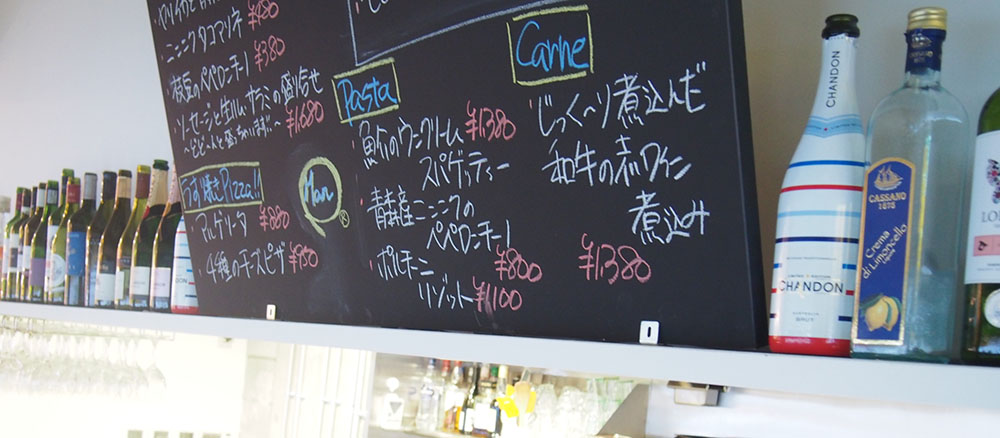 ¥480
・ニンニクタコマリネ
¥380
・枝豆のペペロンチーノ
・ソーセージと生ハム・サラミの盛り合せ
~どどーんと盛っちゃいます!!~ ¥1,680
うす焼きPizza!!
・マルゲリータ ¥880
・4種のチーズピザ ¥950
Pasta
ウニクリーム ¥1,380
スパゲッティー
・青森産ニンニクの
ペペロンチーノ
¥800
・ポルチーニ
リゾット ¥1,100
Carne
・じっく~り煮込んだ
和牛の赤ワイン
煮込み
¥1,380
CHANDON
LIMITED EDITION
CHANDON
AUSTRALIA
BRUT
CASSANO
1875
Crema
di Limoncello